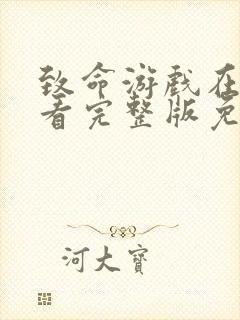 致命游戏在
看完整版免
河大寶